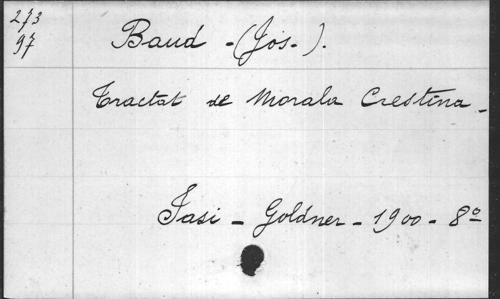 273
97
Baud - (Jos-).
Tractat de Morala Crestina -
Jasi - Goldner - 1900 - 8º